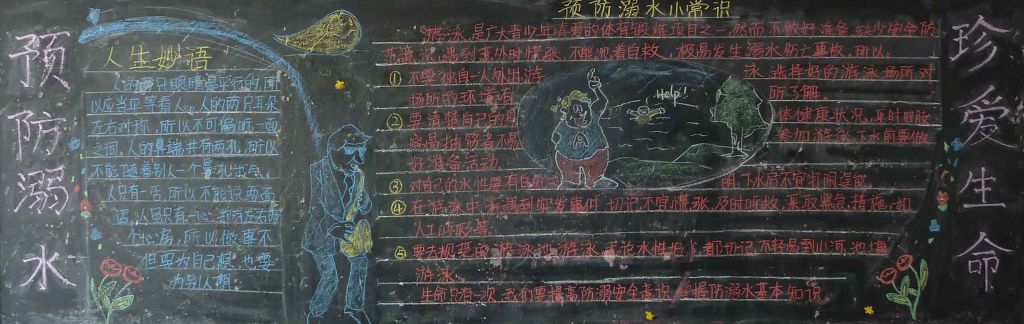 预防溺水
人生妙语
人的两只眼睛是平行的,所
以应当平等看人。人的两只耳朵
左右对称,所以不可偏听一面
之词,人的鼻端共有两孔,所以
不能随着别人一个鼻孔出气。
人只有一舌,所以不能说两套
话,人虽只有一心,却有左右两
个心房,所以做事不
但要为自己想,也要
为别人想。
预防溺水小常识
游泳,是广大青少年喜爱的体育锻炼项目之一。然而不做好准备,缺少安全防
范意识,遇到意外时慌张,不能沉着自救,极易发生溺水伤亡事故。所以:
① 不要独自一人外出游泳,选择好的游泳场所,对
场所的环境有所了解。
② 要清楚自己的身体健康状况,平时四肢
容易抽筋者不易参加游泳,下水前要做
好准备活动。
③ 对自己的水性要有自知之明,下水后不宜打闹逞能。
④ 在游泳中,若遇到突发事件,切记不宜慌张,及时呼救,采取紧急措施,如
人工呼吸等。
⑤ 要去规范的游泳池游泳,无论水性好,都切记不轻易到小河、池塘
游泳。
生命只有一次,我们要提高防溺安全意识,掌握防溺水基本知识。
Help!
珍爱生命